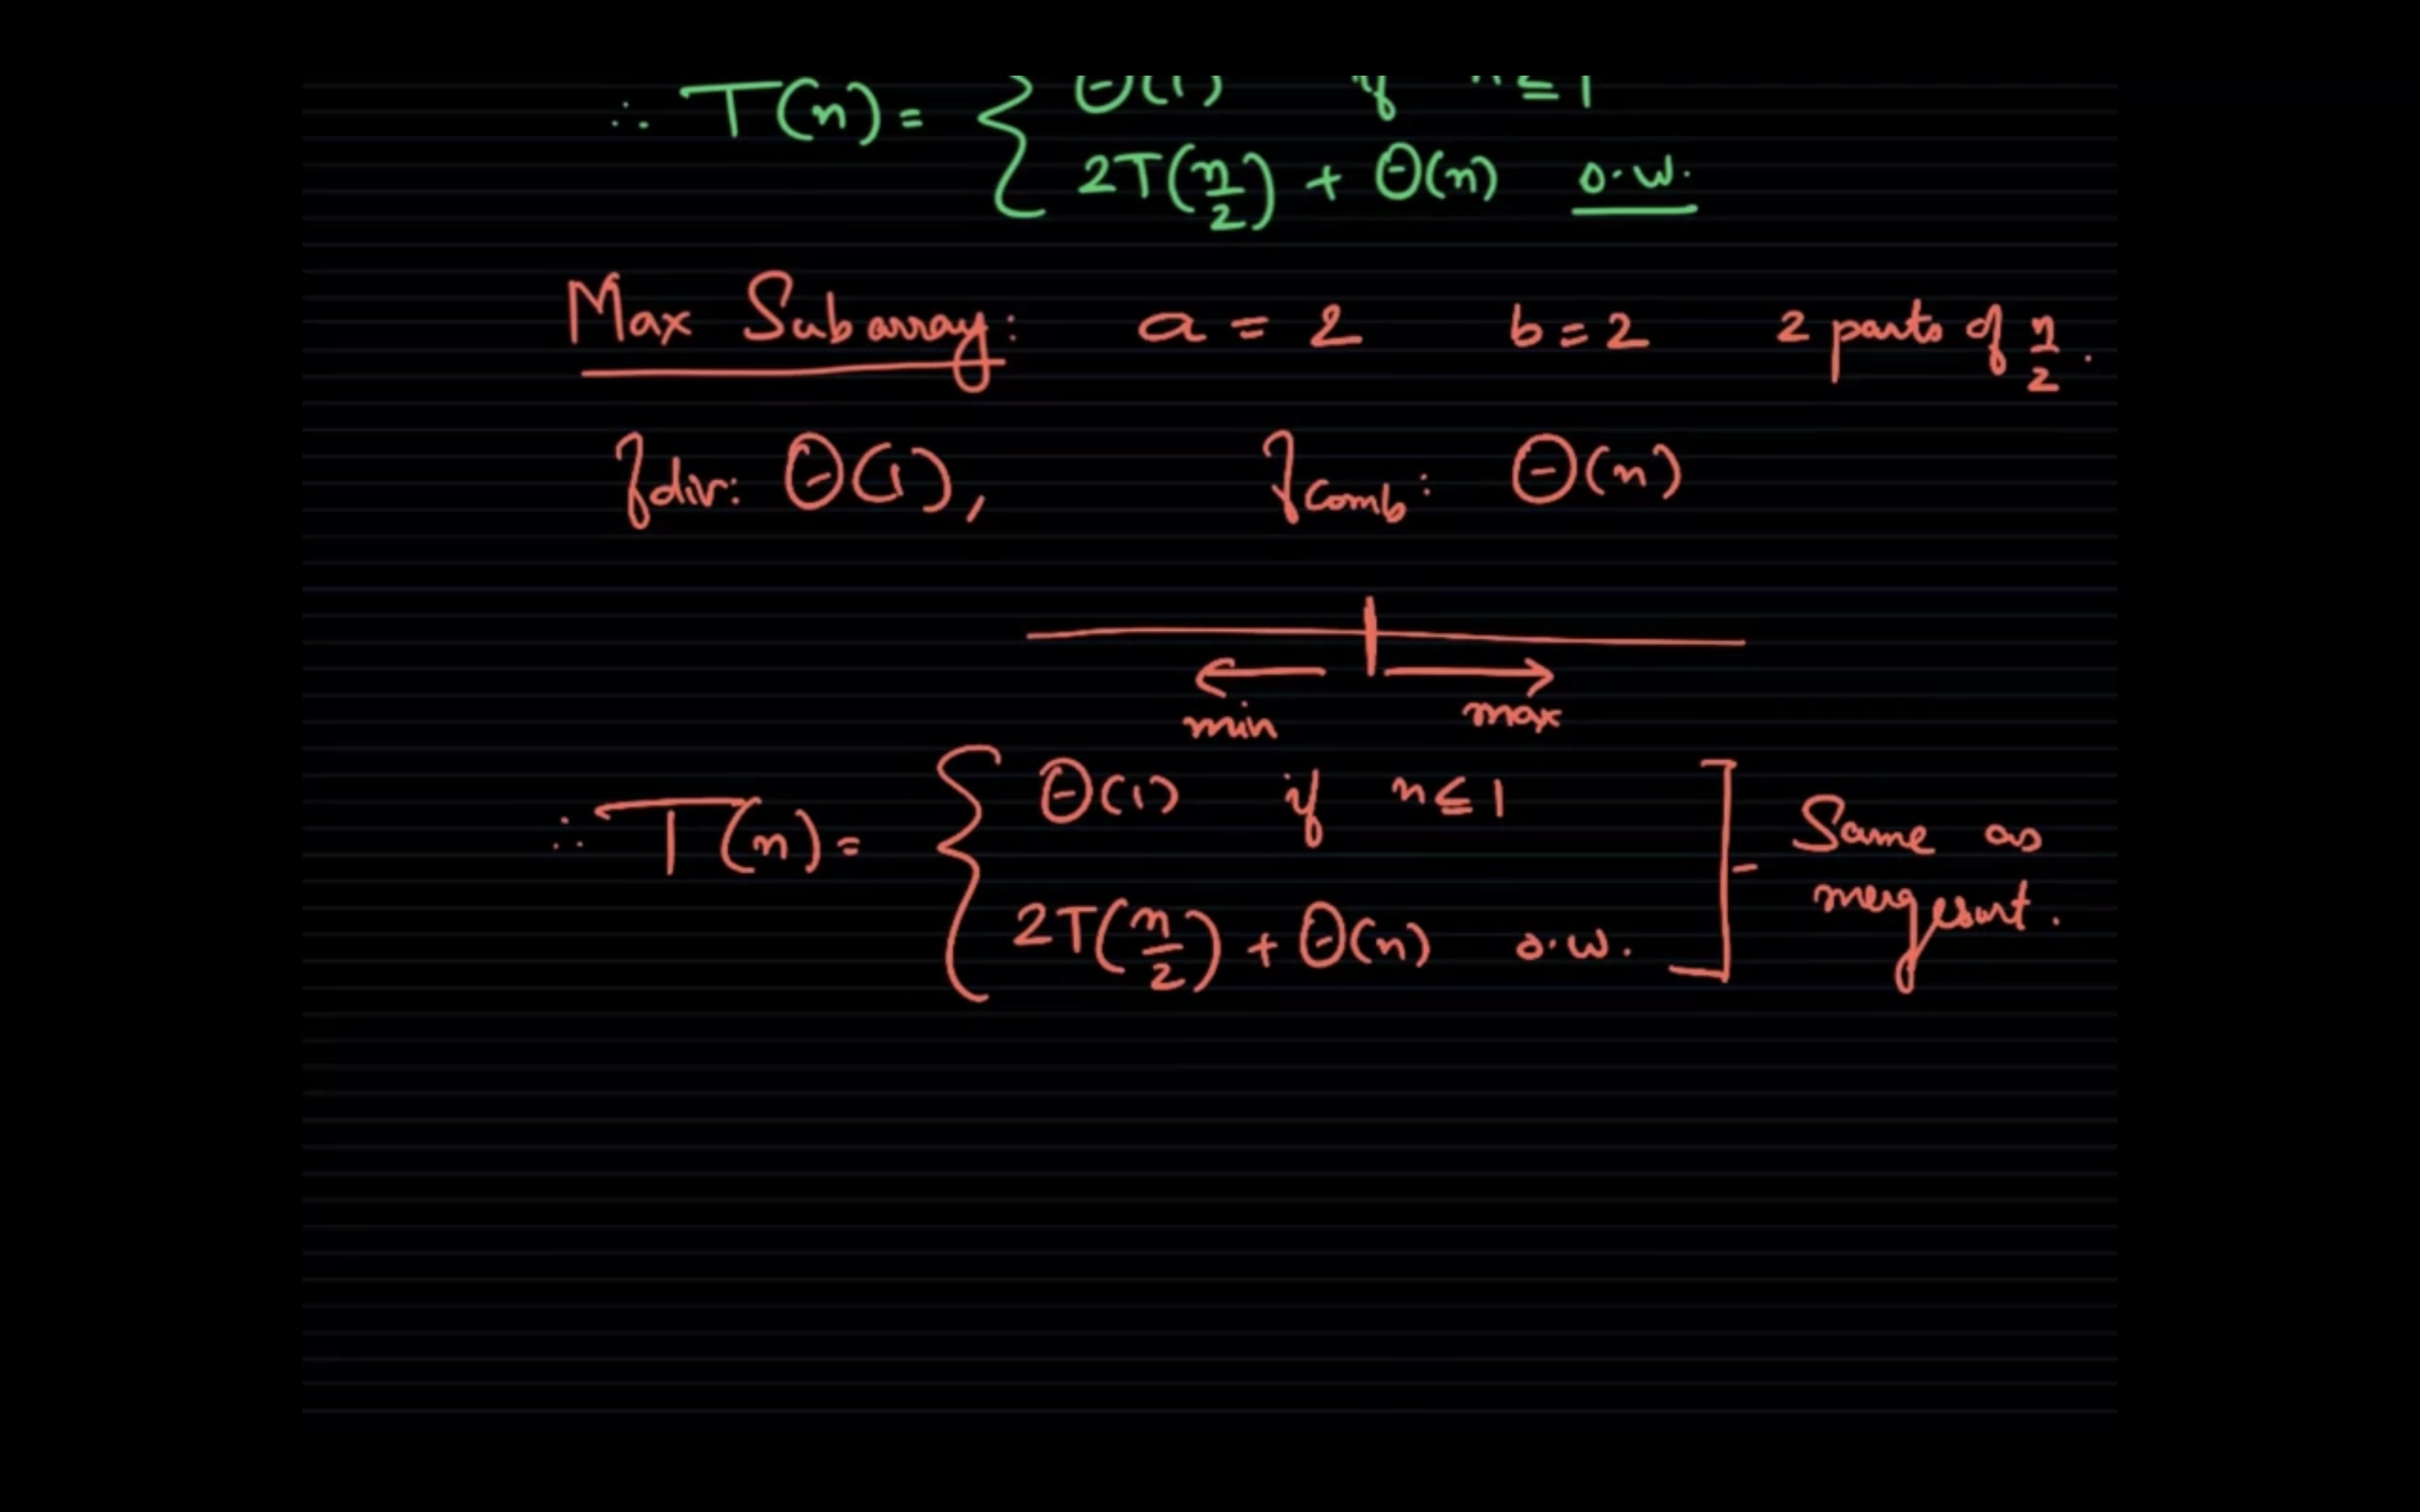 ∴ T(n) = { Θ(1) if n ≤ 1
2T(n/2) + Θ(n) o.w.
Max Subarray: a = 2 b = 2 2 parts of n/2.
fdiv: Θ(1), fcomb: Θ(n)
min max
∴ T(n) = { Θ(1) if n ≤ 1
2T(n/2) + Θ(n) o.w. ] - Same as
mergesort.